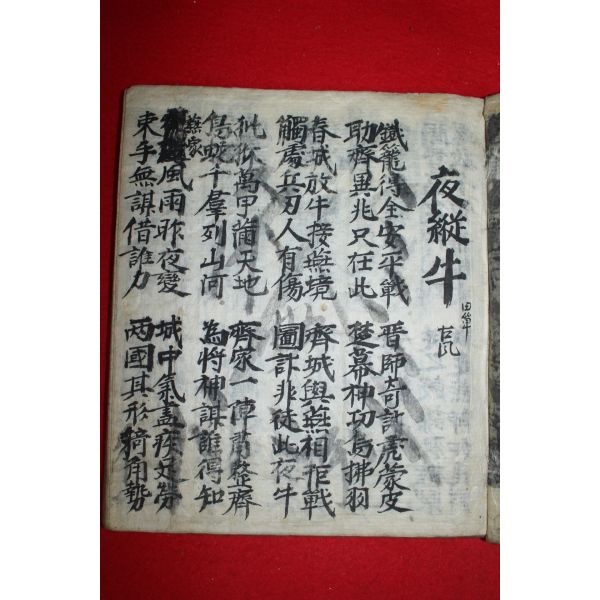 夜縱牛 田單
鐵籠得全安平戰 晋師奇計虎蒙皮
助齊異兆只在此 楚幕神功烏拂羽
春城放牛接燕境 齊城與燕相拒戰
觸處兵刃人有傷 圖計非徒此夜牛
萬甲滿天地 齊家一陣肅整齊
千羣列山河 為將神謀誰得知
燕家風雨昨夜變 城中氣盡疾足勞
束手無謀借誰力 兩國其形犄角勢